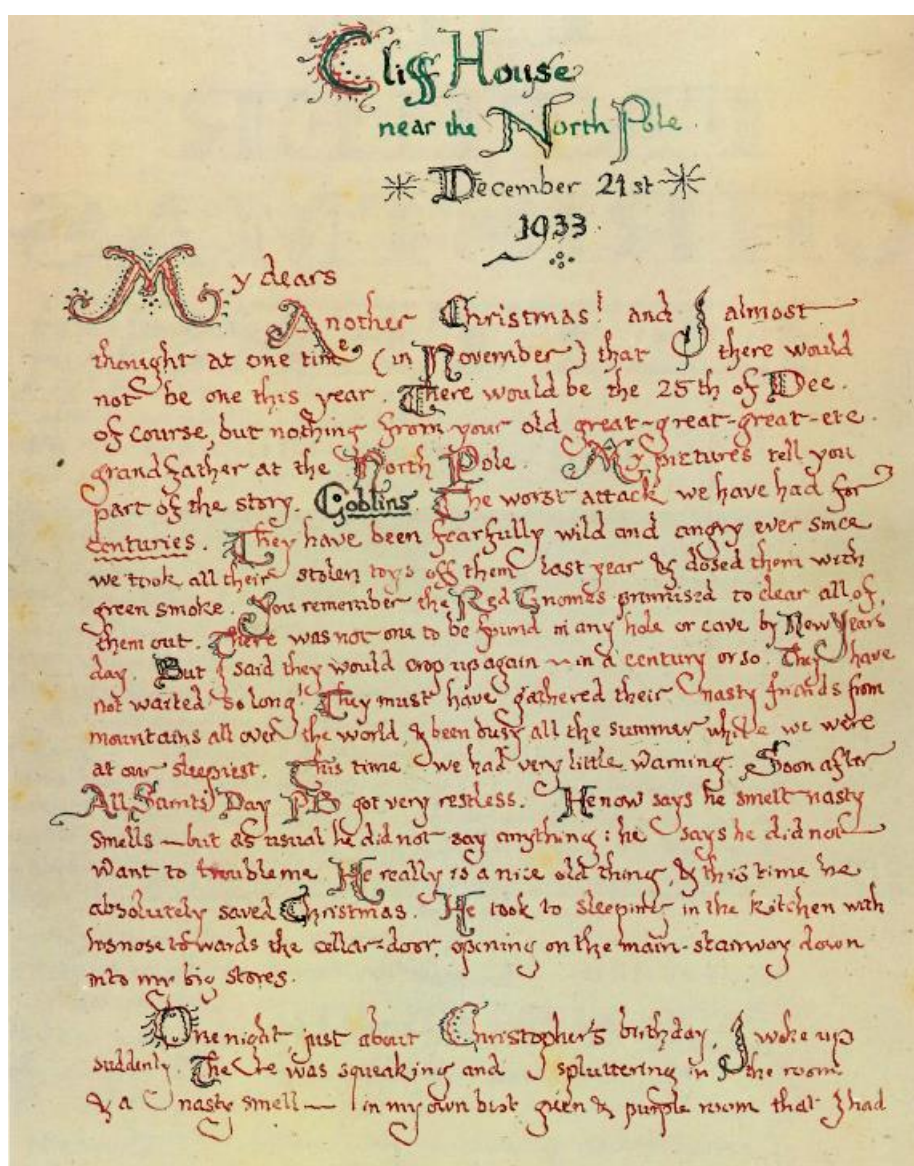 Cliff House
near the North Pole.
December 21st
1933.
My dears
Another Christmas! and I almost
thought at one time (in November) that there would
not be one this year. There would be the 25th of Dec.
of course, but nothing from your old great-great-great-etc.
grandfather at the North Pole. My pictures tell you
part of the story. Goblins. The worst attack we have had for
centuries. They have been fearfully wild and angry ever since
we took all their stolen toys off them last year & dosed them with
green smoke. You remember the Red Gnomes promised to clear all of
them out. There was not one to be found in any hole or cave by New Years
day. But I said they would crop up again – in a century or so. They have
not waited so long! They must have gathered their nasty friends from
mountains all over the world, & been busy all the summer while we were
at our sleepiest. This time we had very little warning. Soon after
All Saints' Day PB got very restless. He now says he smelt nasty
smells – but as usual he did not say anything: he says he did not
want to trouble me. He really is a nice old thing, & this time he
absolutely saved Christmas. He took to sleeping in the kitchen with
his nose towards the cellar-door, opening on the main-stairway down
into my big stores.
One night, just about Christopher's birthday, I woke up
suddenly. There was squeaking and spluttering in the room
& a nasty smell – in my own best green & purple room that I had